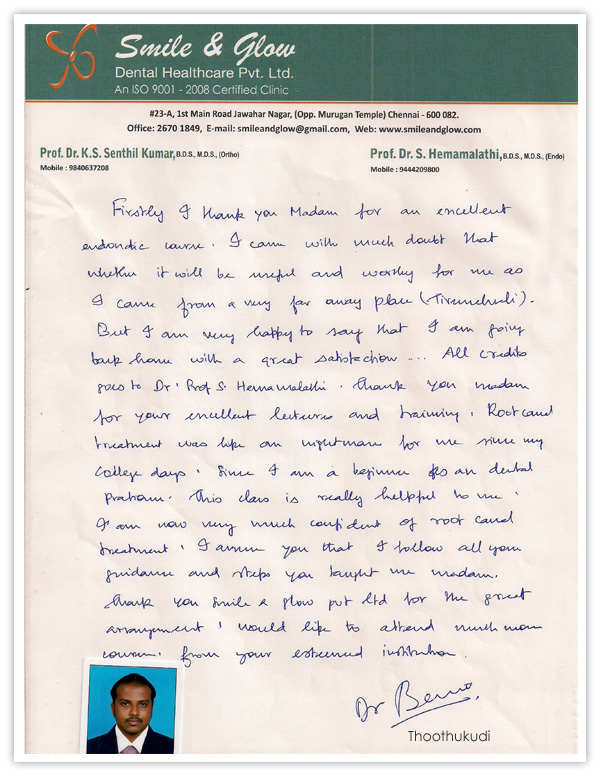 Smile & Glow
Dental Healthcare Pvt. Ltd.
An ISO 9001 - 2008 Certified Clinic
#23-A, 1st Main Road Jawahar Nagar, (Opp. Murugan Temple) Chennai - 600 082.
Office: 2670 1849, E-mail: smileandglow@gmail.com, Web: www.smileandglow.com
Prof. Dr. K.S. Senthil Kumar, B.D.S., M.D.S., (Ortho)
Mobile : 9840637208
Prof. Dr. S. Hemamalathi, B.D.S., M.D.S., (Endo)
Mobile : 9444209800
Firstly I thank you Madam for an excellent
endondic course. I came with much doubt that
whether it will be useful and worthy for me as
I came from a very far away place (Tirunelveli).
But I am very happy to say that I am going
back home with a great satisfaction ... All credits
goes to Dr. Prof S. Hemamalathi. Thank you madam
for your excellent lectures and training. Root canal
treatment was like an nightmare for me since my
college days. Since I am a beginner as an dental
This class is really helpful to me.
I am now very much confident of root canal
treatment. I assure you that I follow all your
guidance and steps you taught me madam.
Thank you Smile & glow pvt ltd for the great
arrangement I would like to attend much more
courses. from your esteemed institution.
Dr Benno.
Thoothukudi